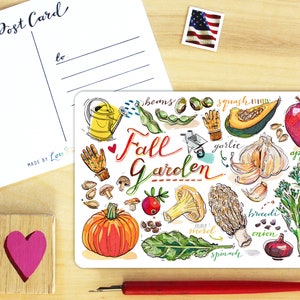 Post Card
to
MADE BY
beans
squash
Fall
garlic
Garden
morel
broccoli
onion
spinach